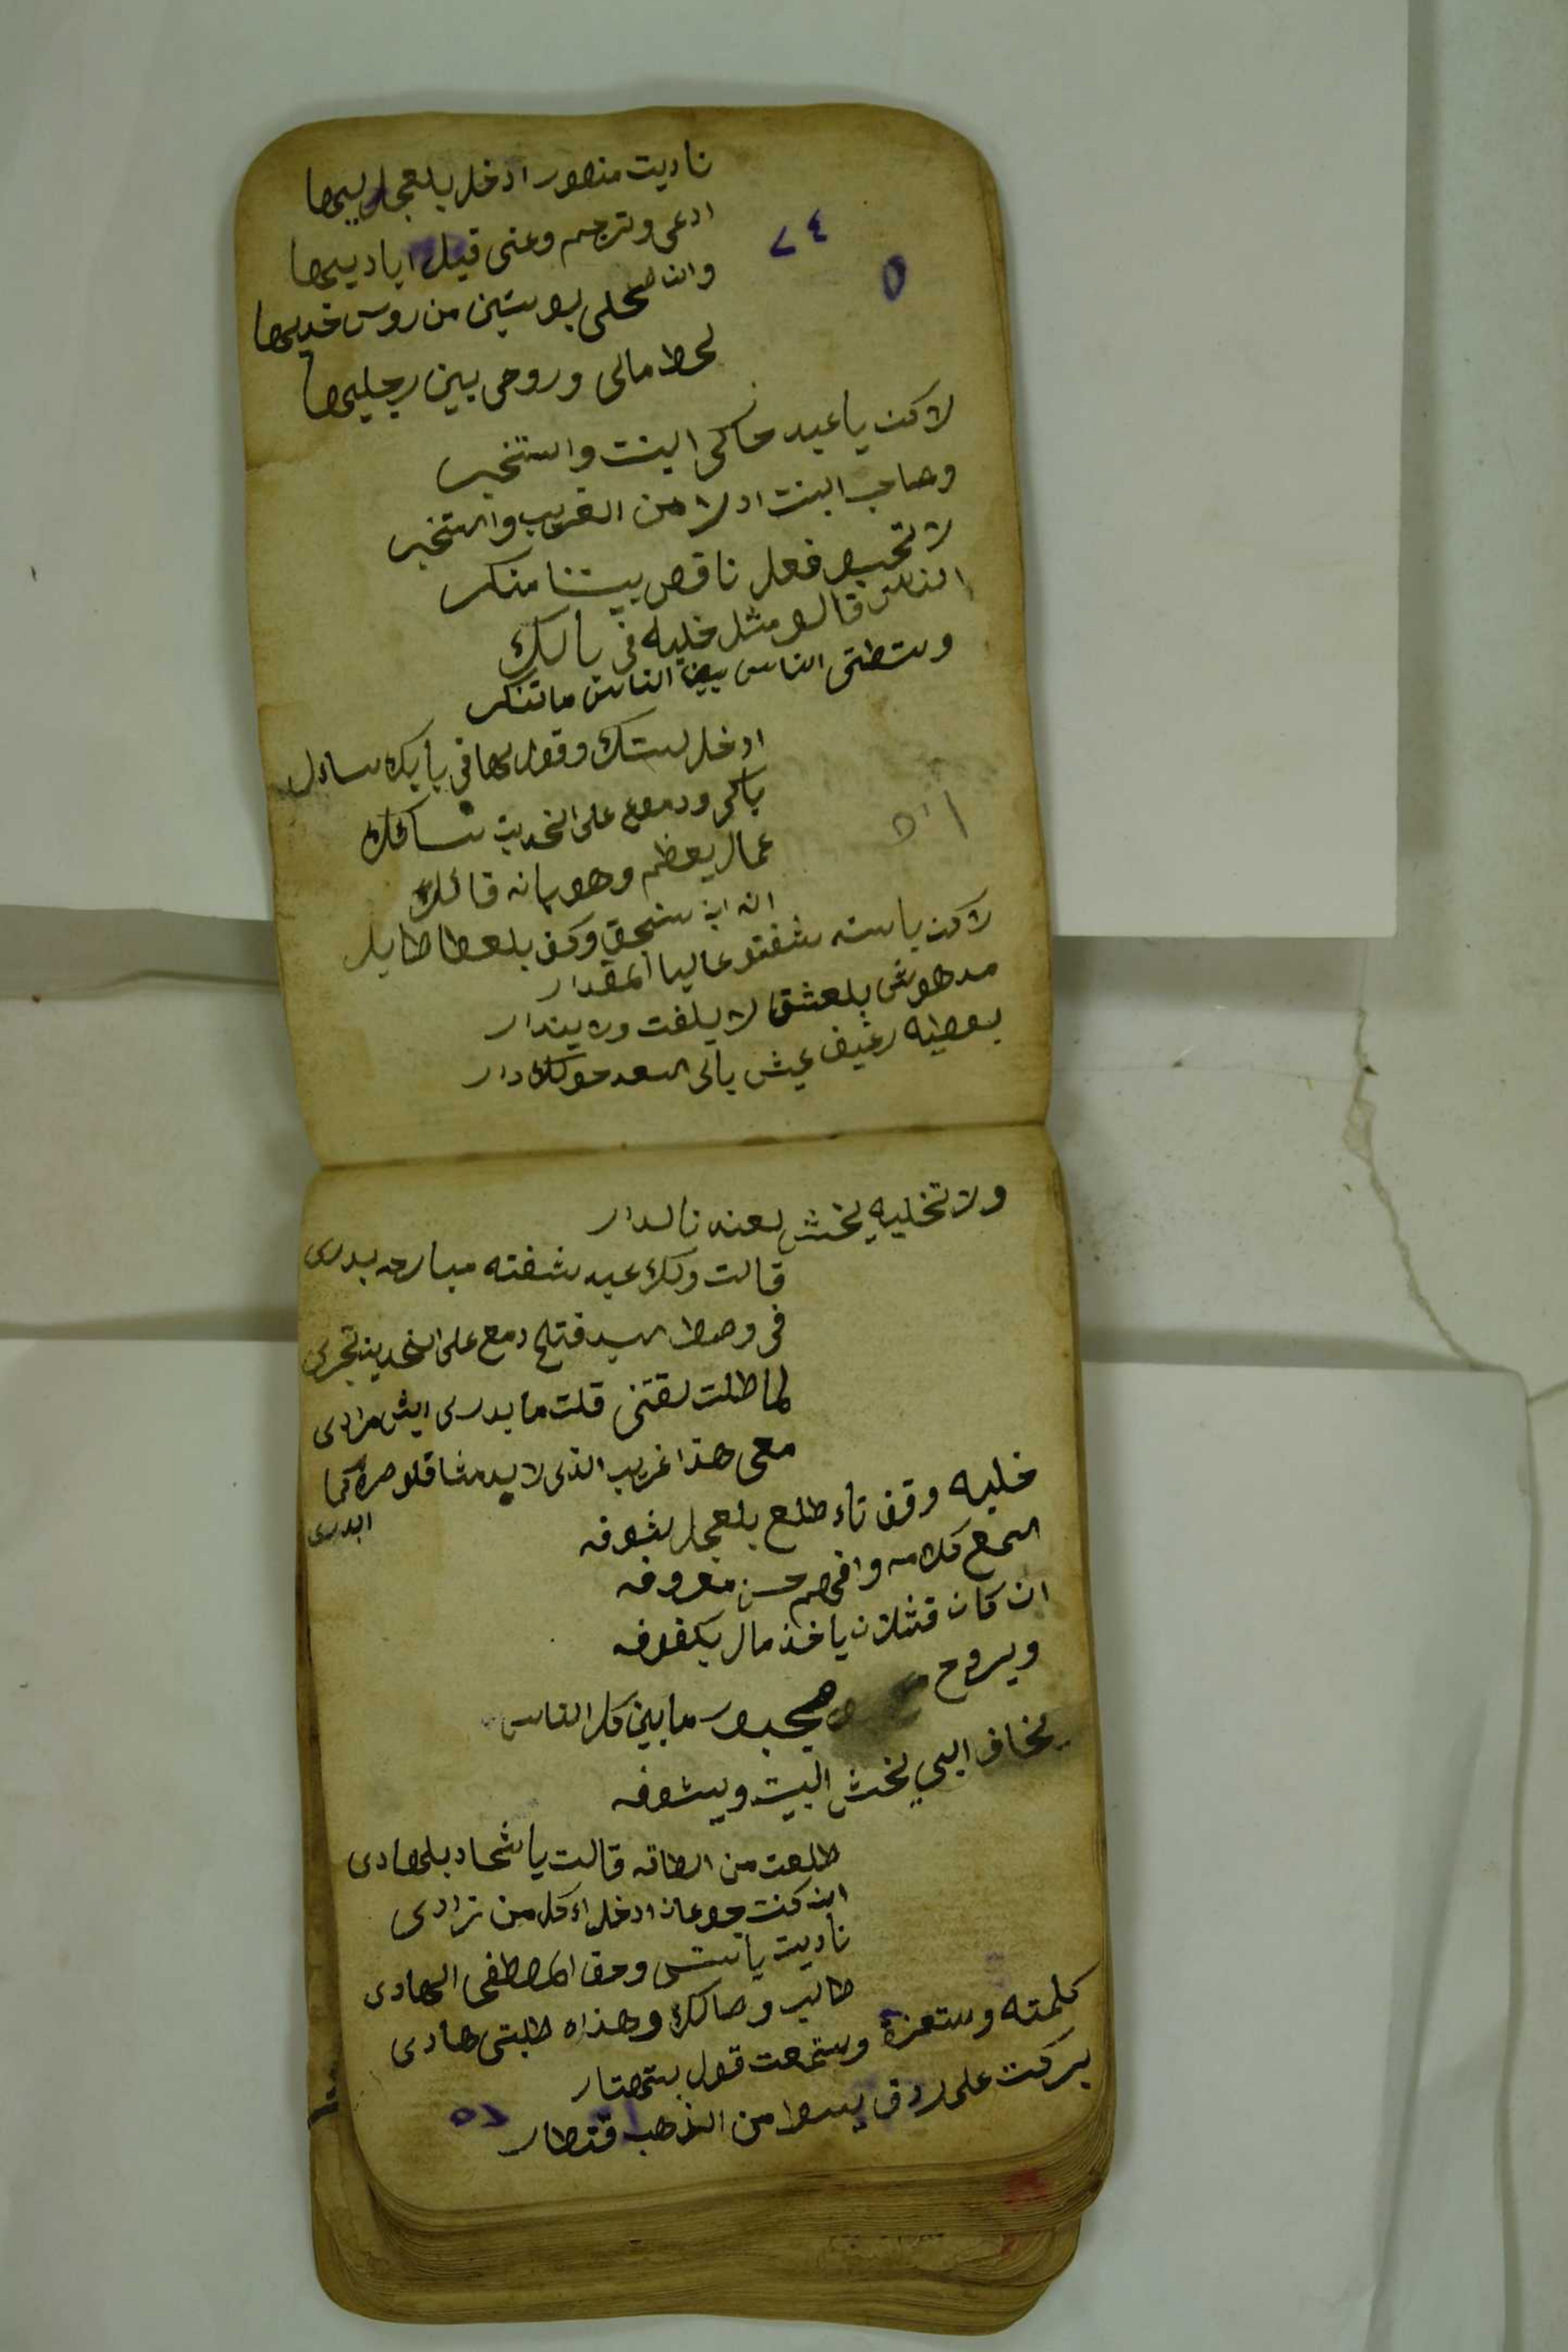 ناديت منصور ادخل بلعجل ليها
ادعى وترجم وعنى قبل اياديها
وان صحلى بوستين من روس خديها
لحط مالى وروحى بين رجليها
٧٤
٥
لاكن يا عبد حاكى البنت واستخبر
وصاحب البنت اولا من الغريب واستخبر
لا تحسبو فعل ناقص بيننا منكر
الناس قالو مثل خليه فى بالك
وستطتى الناس بيض الناس ماتنكر
ادخل لستك وقول لها فى بابك سايل
باكى ودموع على الخدين سائله
عمال يعظم وهو بانه قائلك
انه ابن سنجق وكف بلعطا طايل
لاكن ياسته شفتو عاليا المقدار
مدهوش بلعشق لا يلفت ولا يندار
بعطيه رغيف عيش يالى السعد حولك دار
ولا تخليه يخش لعندنا الدار
قالت ولك عبد شفته مبارحه بدرى
فى وصط سيد فتلح دمع على الخدين تجرى
لما طلت لقتنى قلت ما يدرى ايش مرادى
معى هذا غريب الذى لابد مشاقلو صره كما
البدرى
خليه وقف تاء طلع بلعجل بشوفه
اسمع كلامه وافهم حسن معروفه
ان كان قشلان ياخذ مال بكفوفه
ويروح مجبور مابين كل الناس
يخاف البي يخش البيت ويشوفه
طلعت من الطاقه قالت يا شحاد بلهادى
ان كنت جوعان ادخل اءكل من زادى
ناديت ياست وحق المصطفى الهادى
طالب وصالك وهذاه طلبتى هادى
كلمته وستعزة وستمعت قول بتحصتار
بركت على ردف بسط من الذهب قنطار
٧٥